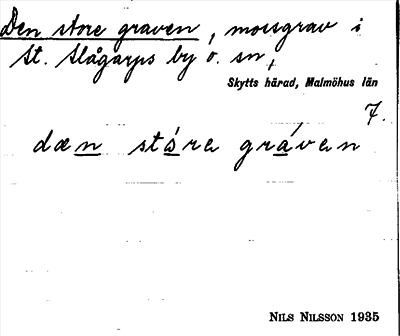 Den store graven, mossgrav i
St. Slågarps by o. sn,
Skytts härad, Malmöhus län
7.
dæn stóra gráven
NILS NILSSON 1935